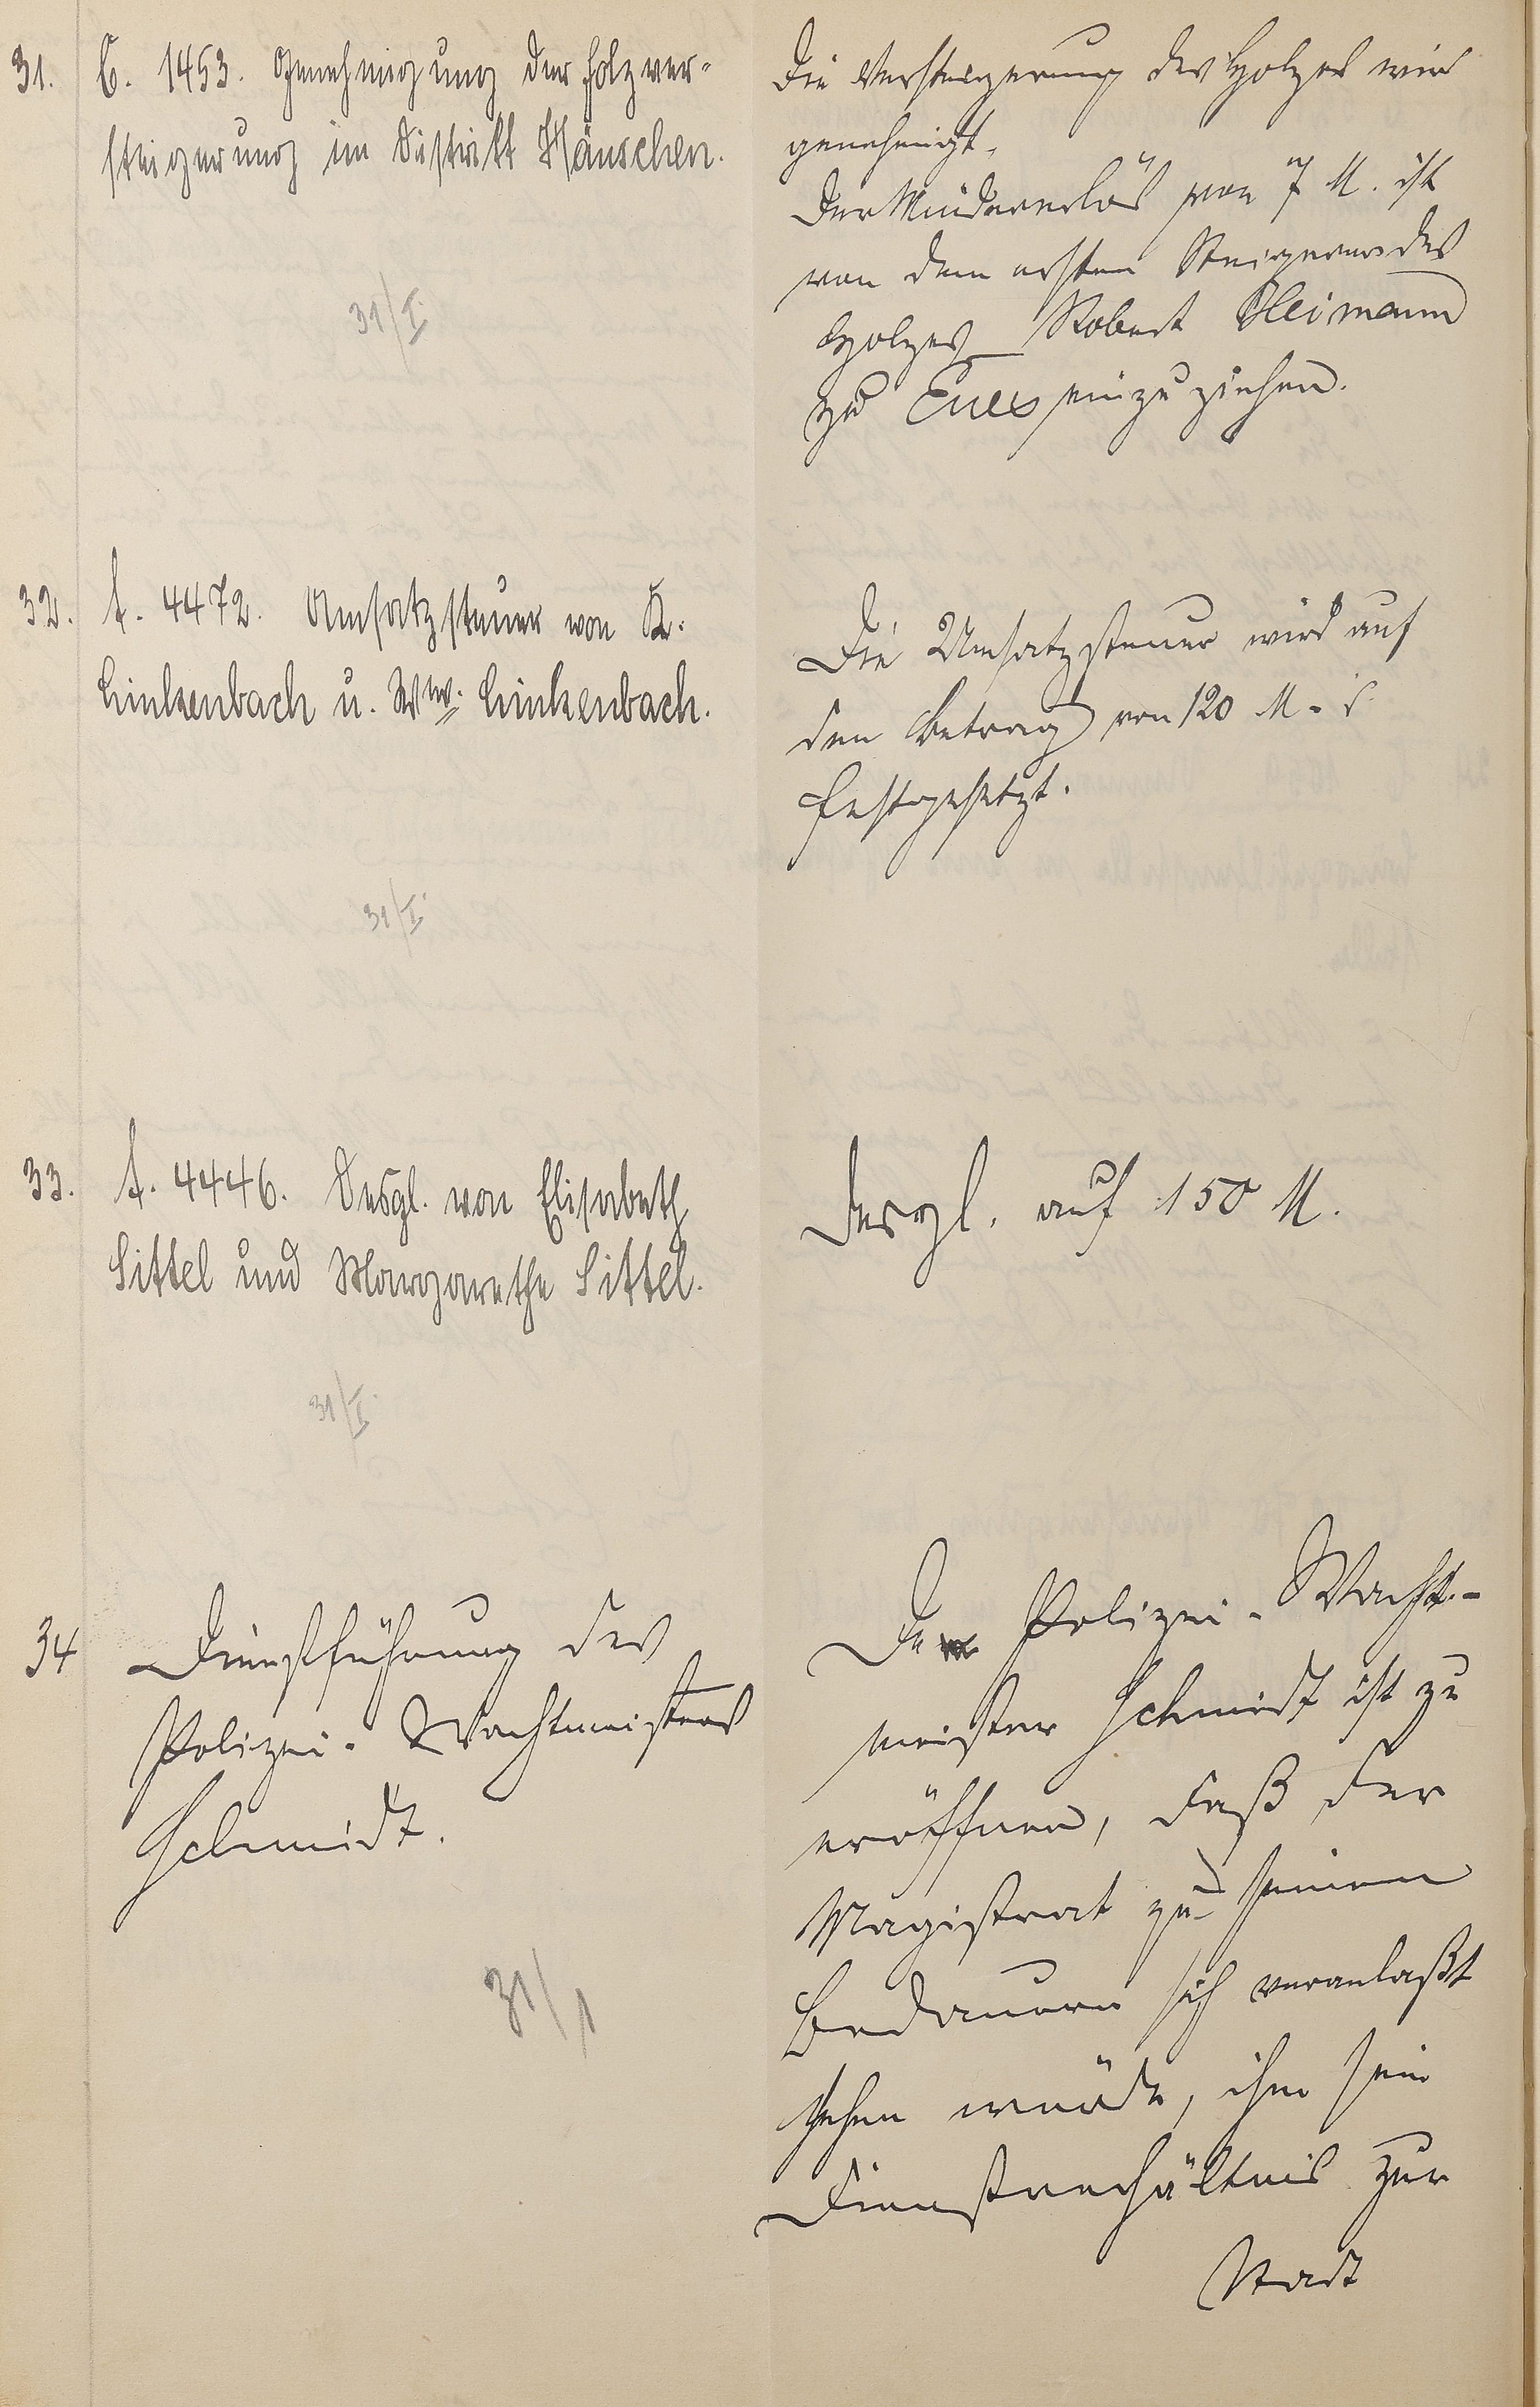 31.
C. 1453. Genehmigung der Holzver-
steigerung im Distrikt Häuschen.
31/I.
Die Versteigerung des Holzes wird
genehmigt.
Der Mindererlös von 7 M. ist
von dem ersten Steigerer des
Holzes Robert Heimann
zu einzuziehen.
32.
A. 4472. Umsatzsteuer von K.
Linkenbach u. Ww. Linkenbach.
31/I.
Die Umsatzsteuer wird auf
den Betrag von 120 M.
festgesetzt.
33.
A. 4446. Desgl. von Elisabeth
Sittel und Margarethe Sittel.
31/I.
Desgl. auf 150 M.
34
Dienstführung des
Polizei-Wachtmeisters
Schmidt.
31/1
Dem Polizei-Wacht-
meister Schmidt ist zu
eröffnen, daß der
Magistrat zu seinem
Bedauern sich veranlaßt
sehen würde, ihm sein
Dienstverhältnis zur
Stadt